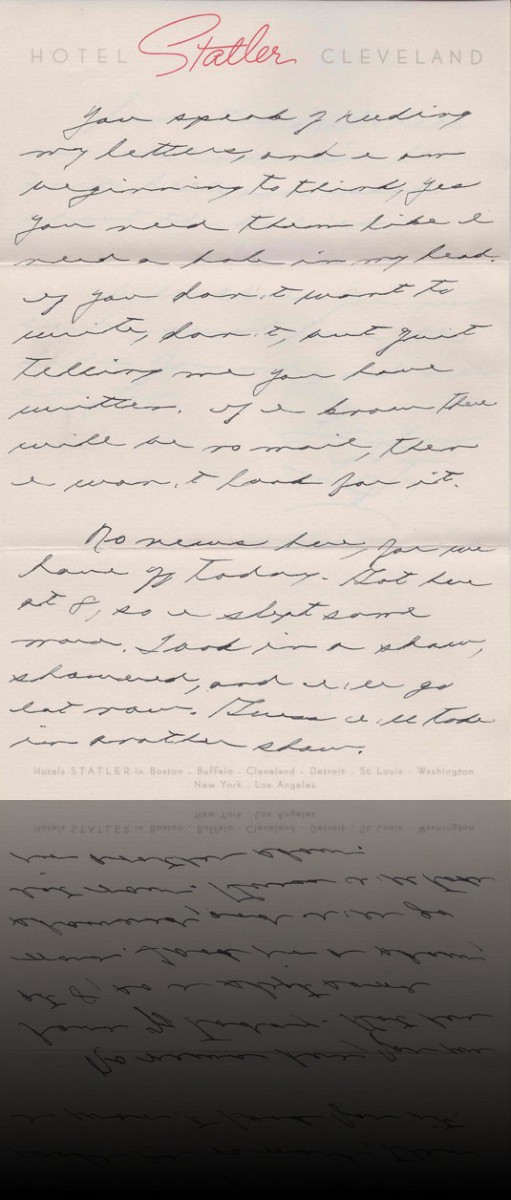 HOTEL Statler CLEVELAND
You speak of needing
my letters, and I am
beginning to think, yes
you need them like I
need a hole in my head.
If you don't want to
write, don't, but quit
telling me you have
written. If I know there
will be no mail, then
I won't look for it.
No news here, for we
have off today. Got here
at 8, so I slept some
more. Took in a show,
showered, and I'll go
eat now. Guess I'll take
in another show.
Hotels STATLER in Boston . Buffalo . Cleveland . Detroit . St. Louis . Washington
New York . Los Angeles